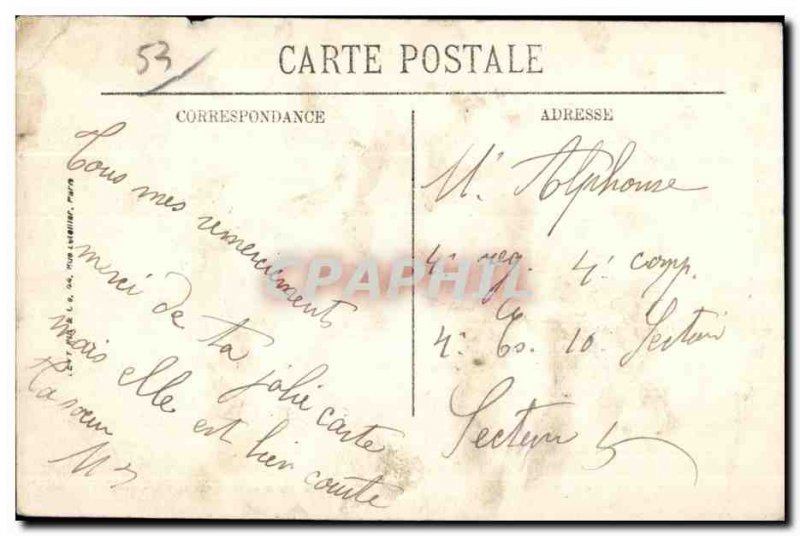 53
CARTE POSTALE
CORRESPONDANCE
ADRESSE
Tous mes remerciements
merci de ta jolie carte
mais elle est bien courte
Ta sœur
M
Mr Alphonse
4e reg. 4e comp.
4e 10 Section
Secteur 5
Rue Letellier, Paris
CPAPHIL